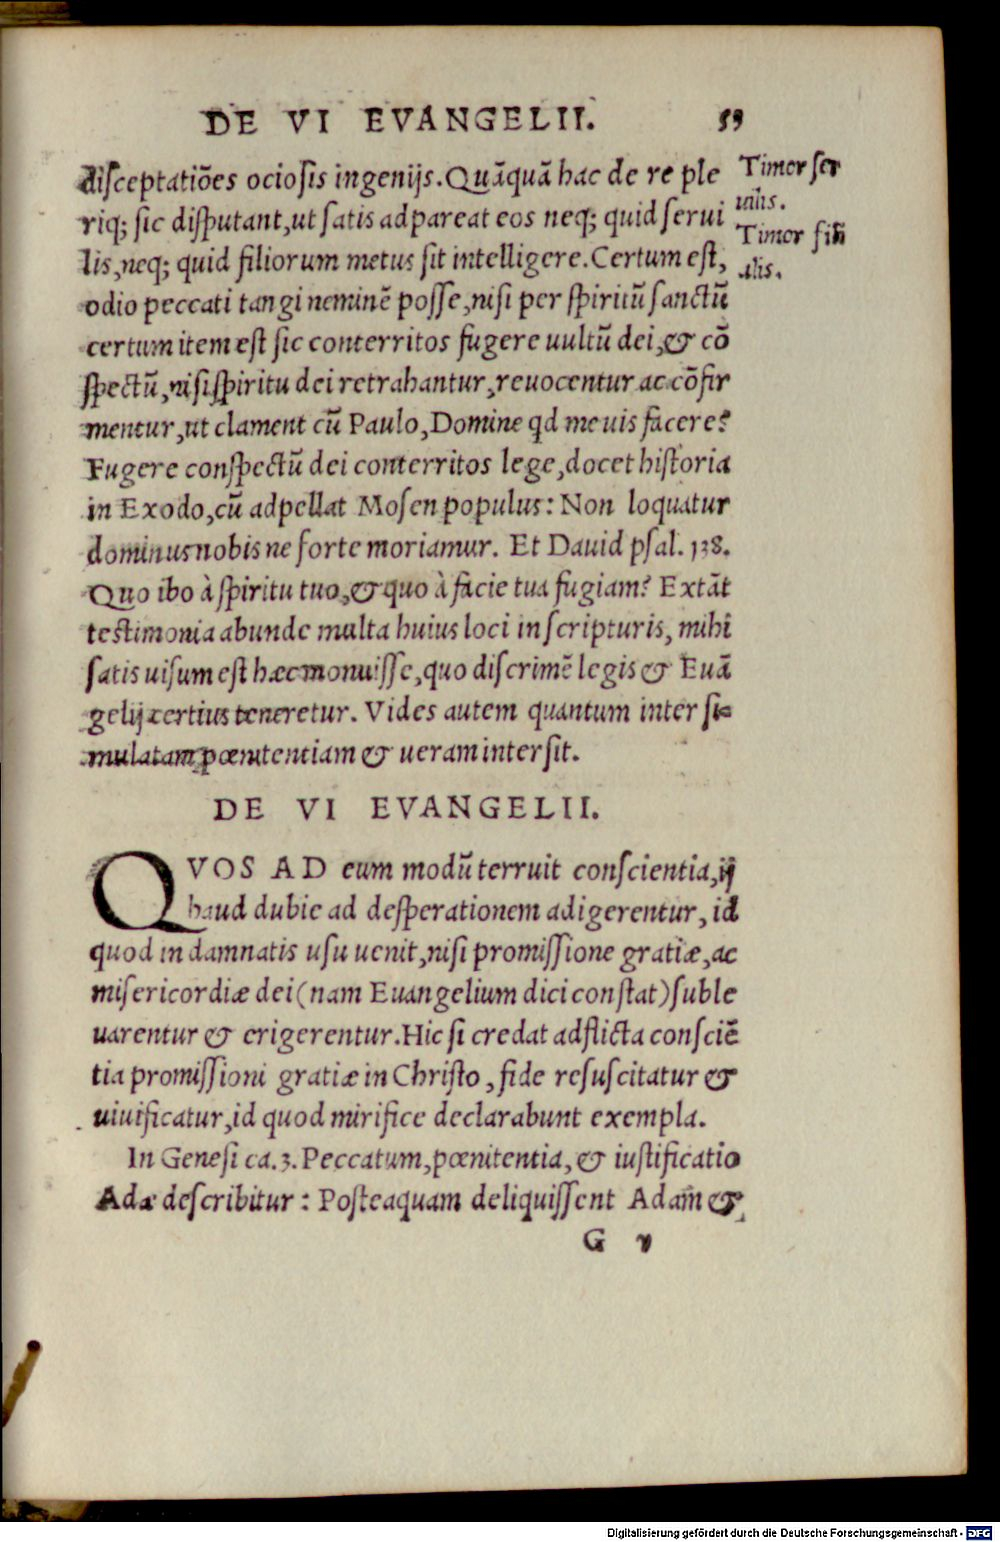 DE VI EVANGELII. 59
disceptatiões ociosis ingenijs. Quãquã hac de re ple
riq; sic disputant, ut satis adpareat eos neq; quid serui
lis, neq; quid filiorum metus sit intelligere. Certum est,
odio peccati tangi neminẽ posse, nisi per spiritũ sanctũ
certum item est sic conterritos fugere uultũ dei, & cõ
spectũ, nisi spiritu dei retrahantur, reuocentur ac cõfir
mentur, ut clament cũ Paulo, Domine qd me uis facere?
Fugere conspectũ dei conterritos lege, docet historia
in Exodo, cũ adpellat Mosen populus: Non loquatur
dominus nobis ne forte moriamur. Et Dauid psal. 138.
Quo ibo à spiritu tuo, & quo à facie tua fugiam? Extãt
testimonia abunde multa huius loci in scripturis, mihi
satis uisum est hæc monuisse, quo discrimẽ legis & Euã
gelij certius teneretur. Vides autem quantum inter si-
mulatam pœnitentiam & ueram intersit.
Timor ser
uilis.
Timor fili
alis.
DE VI EVANGELII.
QVOS AD eum modũ terruit conscientia, ij
haud dubie ad desperationem adigerentur, id
quod in damnatis usu uenit, nisi promissione gratiæ, ac
misericordiæ dei (nam Euangelium dici constat) suble
uarentur & erigerentur. Hic si credat adflicta consciẽ
tia promissioni gratiæ in Christo, fide resuscitatur &
uiuificatur, id quod mirifice declarabunt exempla.
In Genesi ca. 3. Peccatum, pœnitentia, & iustificatio
Adæ describitur: Posteaquam deliquissent Adam &
G v
Digitalisierung gefördert durch die Deutsche Forschungsgemeinschaft - DFG